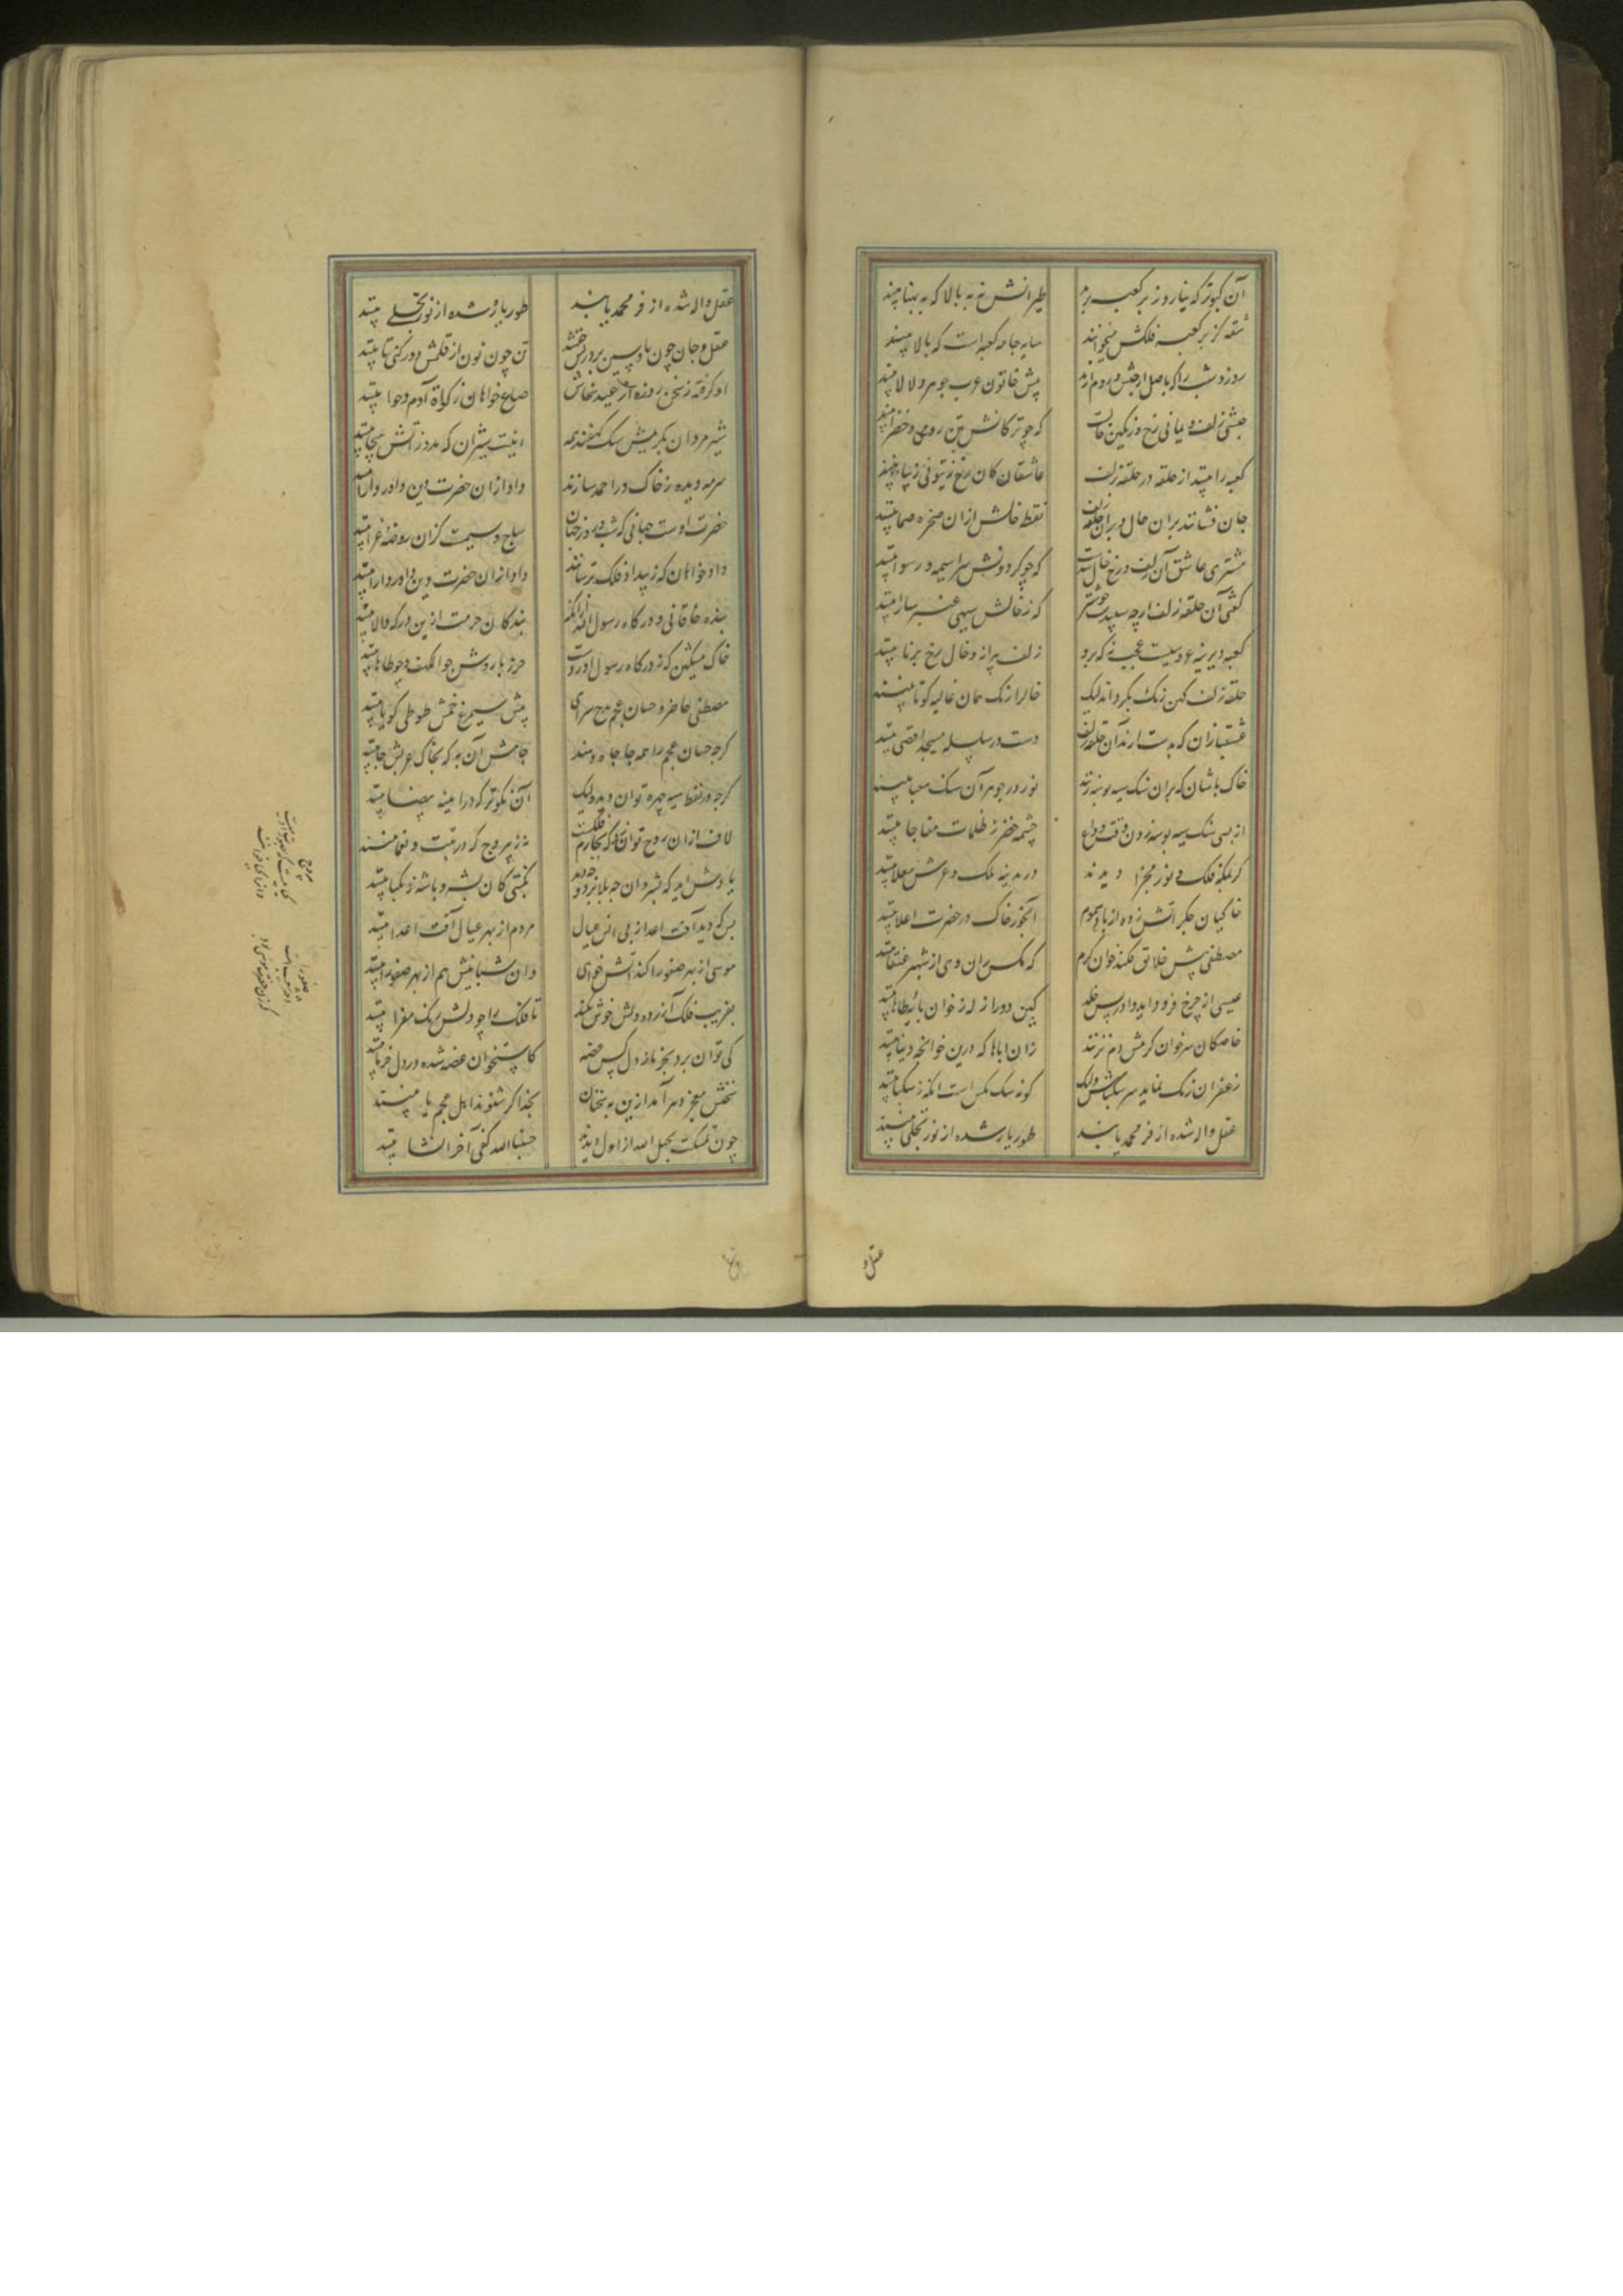 آن کبوتر که نیارد ز بر کعبه پرد طیرانش نه به بالا که به پهنا بینند
شقه کز بر کعبه فلکش میخوانند سایه جامه کعبه است که بالا بینند
روز و شب را که باصل از حبش و روم آرند پیش خاتون عرب جوهر و لالا بینند
حبشی زلف و یمانی رخ و زنگین خالست که چو ترکانش تتق رومی و خضرا بینند
کعبه را بینند از حلقه در حلقه زلف عاشقان کان رخ زیتونی زیبا بینند
جان فشانند بران خال و بران حلقه زلف نقطه خالش ازان صخره صما بینند
مشتری عاشق آن زلف و رخ و خالست که چو گردونش سراسیمه و رسوا بینند
گفتی آن حلقه زلف ارچه سپید خوشتر که ز خالش سیهی عنبر سارا بینند
کعبه دیرینه عروسیست عجب نه که برو زلف پیرانه و خال رخ برنا بینند
حلقه زلف کهن رنگ بگرداند لیک خال را رنگ همان غالیه گونا بینند
عشقبازان که بدست آرند آن حلقه زلف دست در سلسله مسجد اقصی بینند
خاک پاشان که بران سنگ سیه بوسه زنند نور در جوهر آن سنگ معبا بینند
از پس سنگ سیه بوسه زدن وقت وداع چشمه خضر ز ظلمات مفاجا بینند
گر بمکه فلک و نور مجزا دیدند در مدینه ملک و عرش معلا بینند
خاکیان جگر آتش زده از باد سموم آبخور خاک در حضرت اعلا بینند
مصطفی پیش خلایق فکند خوان کرم که مگس ران وی از شهپر عنقا بینند
عیسی از چرخ فرود آید و ادریس ز خلد کین دو را زله ز خوان پایه طاها بینند
خاصگان سر خوان کرمش دم نزنند زان اباها که درین خوانچه دنیا بینند
زعفران رنگ نماید سر سکباش ولیک گونه سگ مگس است آنکه ز سکبا بینند
عقل واله شده از فر محمد یابند طور پاره شده از نور تجلی بینند
عقل و
عقل واله شده از فر محمد یابند طور پاره شده از نور تجلی بینند
عقل و جان چون یا و سین بر در یس خفتند تن چون نون از قلمش دور کنی تا بینند
او گرفته ز سخن روزه و از عید سخاش صاع خواهان زکوة آدم و حوا بینند
شیر مردان بدرش پیش سگ کهفند همه اینت شیران که مدد ز آتش هیجا بینند
سرمه دیده ز خاک در احمد سازند
حضرت اوست جهانی که شب و روز جهان ساج و سیمیست کزان روضه غرا بینند
داد خواهان که ز بیداد فلک ترسانند داد ازان حضرت دین داور دارا بینند
بنده خاقانی و درگاه رسول الله از آنکه بندگان حرمت ازین درگه والا بینند
خاک مشکین که ز درگاه رسول آوردست حرز بازوش چو الکهف و چو طاها بینند
مصطفی حاضر و حسان عجم مدح سرای پیش سیمرغ خمش طوطی گویا بینند
گرچه حسان عجم را همه جا جاه دهند جاهش آن به که بخاک عربش جا بینند
گرچه در نفط سیه چهره توان دید ولیک آن نکوتر که در آینه بیضا بینند
لاف ازان روح توان زد که بچارم فلکست نه زپیروج که در تبت و یغما بینند
یا
بس که دید آفت اعدا ز پی انس عیال مردم از بهر عیال آفت اعدا بینند
موسی از بهر صفورا کند آتش خواهی وان شبانیش هم از بهر صفورا بینند
بفریب فلک آزرده دلش خوش نکنند تا فلک را چو دلش رنگ معزا بینند
کی توان برد بخرما ز دل کس غصه کاستخوان غصه شده در دل خرما بینند
سخنش معجز دهر آمد ازین به سخنان بخدا گر شنوند اهل عجم یا بینند
چون تمسکت بحبل الله از اول دیدند حسبنا الله کفی آخر انشا بینند